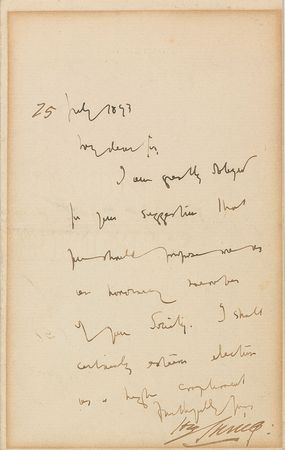 25 July 1893
My dear Sir,
I am greatly obliged
for your suggestion that
you should propose me as
an honorary member
of your Society. I shall
certainly esteem election
as a high compliment
Faithfully yours